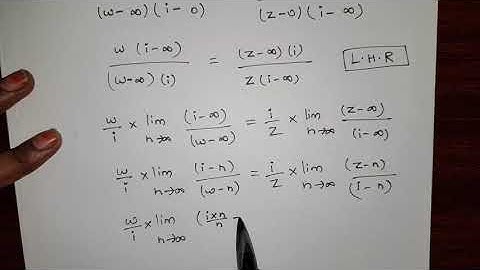 (w-∞)(i-0) (z-0)(i-∞)
w (i-∞) / (w-∞)(i) = (z-∞)(i) / z(i-∞) L.H.R
w/i × lim n→∞ (i-∞)/(w-∞) = i/z × lim n→∞ (z-∞)/(i-∞)
w/i × lim n→∞ (i-n)/(w-n) = i/z × lim n→∞ (z-n)/(i-n)
w/i × lim n→∞ (i×n/n -